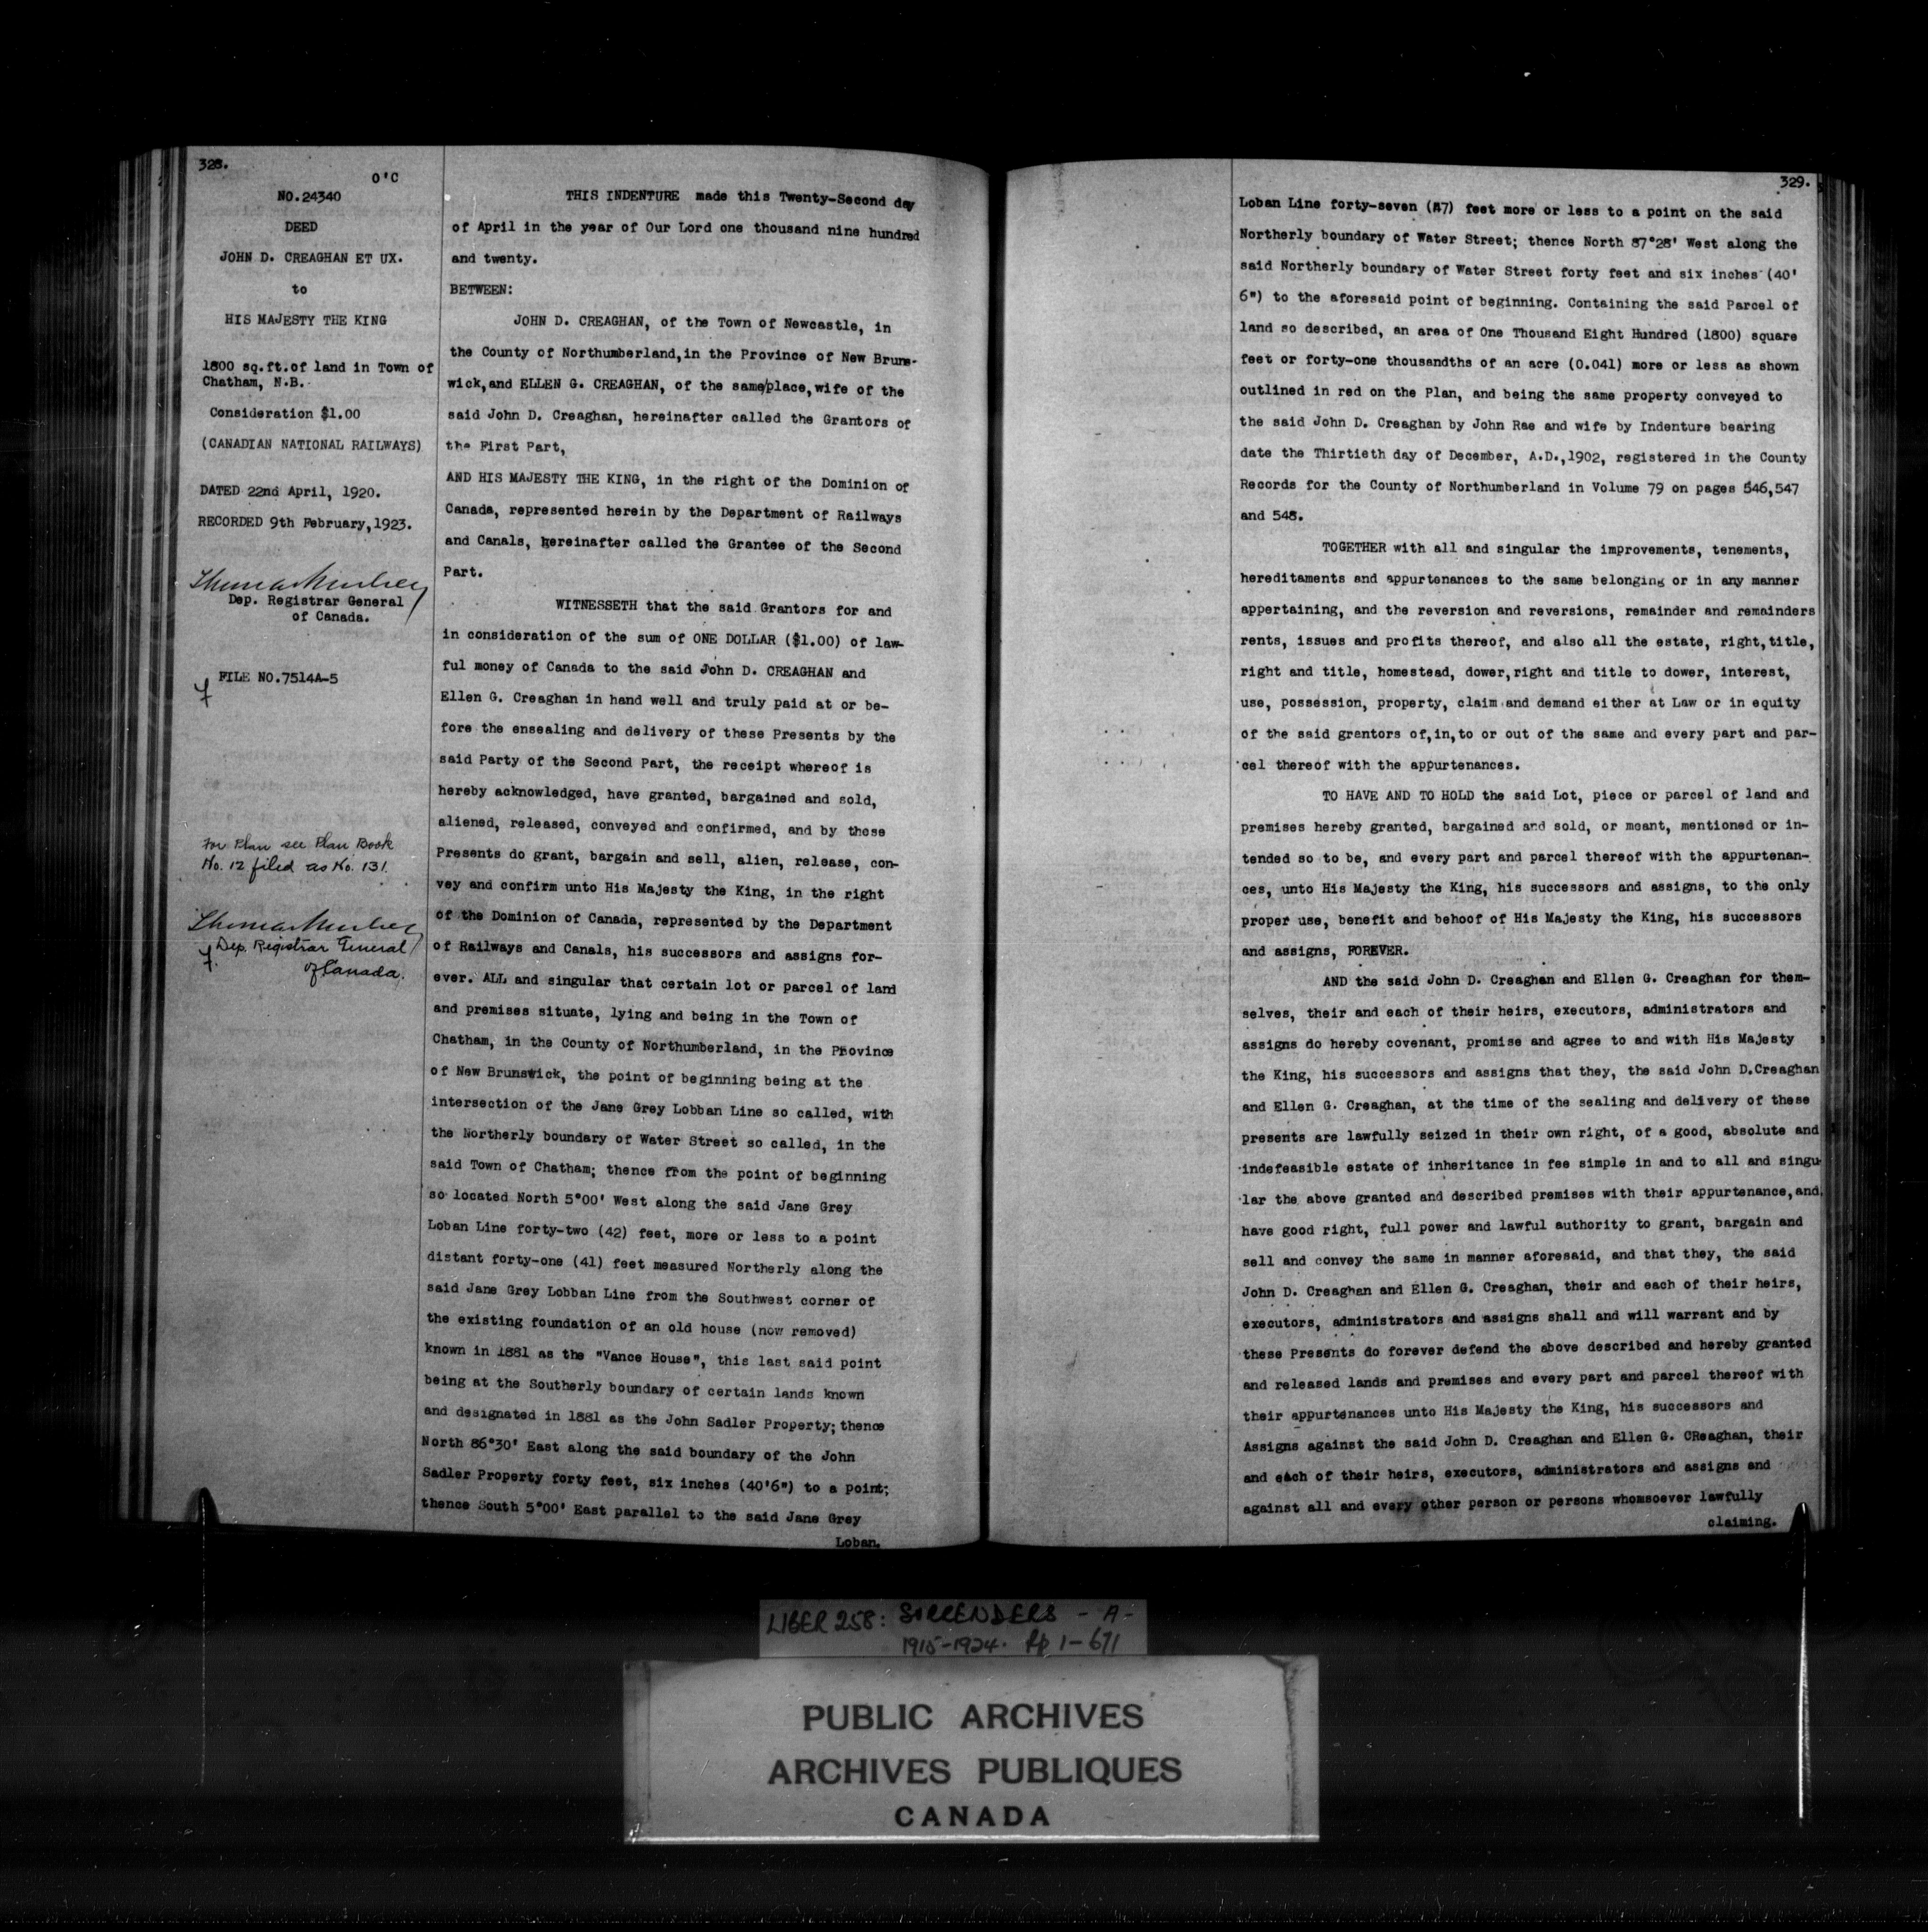 328.
O'C
NO.24340
DEED
JOHN D. CREAGHAN ET UX.
to
HIS MAJESTY THE KING
1800 sq.ft.of land in Town of
Chatham, N.B.
Consideration $1.00
(CANADIAN NATIONAL RAILWAYS)
DATED 22nd April, 1920.
RECORDED 9th February,1923.
Thomas Mulvey
Dep. Registrar General
of Canada.
FILE NO.7514A-5
For Plan see Plan Book
No. 12 filed as No. 131.
Thomas Mulvey
Dep. Registrar General
of Canada.
THIS INDENTURE made this Twenty-Second day
of April in the year of Our Lord one thousand nine hundred
and twenty.
BETWEEN:
JOHN D. CREAGHAN, of the Town of Newcastle, in
the County of Northumberland,in the Province of New Bruns-
wick,and ELLEN G. CREAGHAN, of the same/place,wife of the
said John D. Creaghan, hereinafter called the Grantors of
the First Part,
AND HIS MAJESTY THE KING, in the right of the Dominion of
Canada, represented herein by the Department of Railways
and Canals, hereinafter called the Grantee of the Second
Part.
WITNESSETH that the said Grantors for and
in consideration of the sum of ONE DOLLAR ($1.00) of law-
ful money of Canada to the said John D. CREAGHAN and
Ellen G. Creaghan in hand well and truly paid at or be-
fore the ensealing and delivery of these Presents by the
said Party of the Second Part, the receipt whereof is
hereby acknowledged, have granted, bargained and sold,
aliened, released, conveyed and confirmed, and by these
Presents do grant, bargain and sell, alien, release, con-
vey and confirm unto His Majesty the King, in the right
of the Dominion of Canada, represented by the Department
of Railways and Canals, his successors and assigns for-
ever. ALL and singular that certain lot or parcel of land
and premises situate, lying and being in the Town of
Chatham, in the County of Northumberland, in the Province
of New Brunswick, the point of beginning being at the
intersection of the Jane Grey Lobban Line so called, with
the Northerly boundary of Water Street so called, in the
said Town of Chatham; thence from the point of beginning
so located North 5°00' West along the said Jane Grey
Loban Line forty-two (42) feet, more or less to a point
distant forty-one (41) feet measured Northerly along the
said Jane Grey Lobban Line from the Southwest corner of
the existing foundation of an old house (now removed)
known in 1881 as the "Vance House", this last said point
being at the Southerly boundary of certain lands known
and designated in 1881 as the John Sadler Property; thence
North 86°30' East along the said boundary of the John
Sadler Property forty feet, six inches (40'6") to a point;
thence South 5°00' East parallel to the said Jane Grey
Loban.
329.
Loban Line forty-seven (47) feet more or less to a point on the said
Northerly boundary of Water Street; thence North 87°28' West along the
said Northerly boundary of Water Street forty feet and six inches (40'
6") to the aforesaid point of beginning. Containing the said Parcel of
land so described, an area of One Thousand Eight Hundred (1800) square
feet or forty-one thousandths of an acre (0.041) more or less as shown
outlined in red on the Plan, and being the same property conveyed to
the said John D. Creaghan by John Rae and wife by Indenture bearing
date the Thirtieth day of December, A.D.,1902, registered in the County
Records for the County of Northumberland in Volume 79 on pages 546,547
and 548.
TOGETHER with all and singular the improvements, tenements,
hereditaments and appurtenances to the same belonging or in any manner
appertaining, and the reversion and reversions, remainder and remainders
rents, issues and profits thereof, and also all the estate, right,title,
right and title, homestead, dower,right and title to dower, interest,
use, possession, property, claim and demand either at Law or in equity
of the said grantors of,in,to or out of the same and every part and par-
cel thereof with the appurtenances.
TO HAVE AND TO HOLD the said Lot, piece or parcel of land and
premises hereby granted, bargained and sold, or meant, mentioned or in-
tended so to be, and every part and parcel thereof with the appurtenan-
ces, unto His Majesty the King, his successors and assigns, to the only
proper use, benefit and behoof of His Majesty the King, his successors
and assigns, FOREVER.
AND the said John D. Creaghan and Ellen G. Creaghan for them-
selves, their and each of their heirs, executors, administrators and
assigns do hereby covenant, promise and agree to and with His Majesty
the King, his successors and assigns that they, the said John D.Creaghan
and Ellen G. Creaghan, at the time of the sealing and delivery of these
presents are lawfully seized in their own right, of a good, absolute and
indefeasible estate of inheritance in fee simple in and to all and singu-
lar the above granted and described premises with their appurtenance,and
have good right, full power and lawful authority to grant, bargain and
sell and convey the same in manner aforesaid, and that they, the said
John D. Creaghan and Ellen G. Creaghan, their and each of their heirs,
executors, administrators and assigns shall and will warrant and by
these Presents do forever defend the above described and hereby granted
and released lands and premises and every part and parcel thereof with
their appurtenances unto His Majesty the King, his successors and
Assigns against the said John D. Creaghan and Ellen G. CReaghan, their
and each of their heirs, executors, administrators and assigns and
against all and every other person or persons whomsoever lawfully
claiming.
LIBER 258: SURRENDERS - A -
1915-1924. Pp 1-671
PUBLIC ARCHIVES
ARCHIVES PUBLIQUES
CANADA